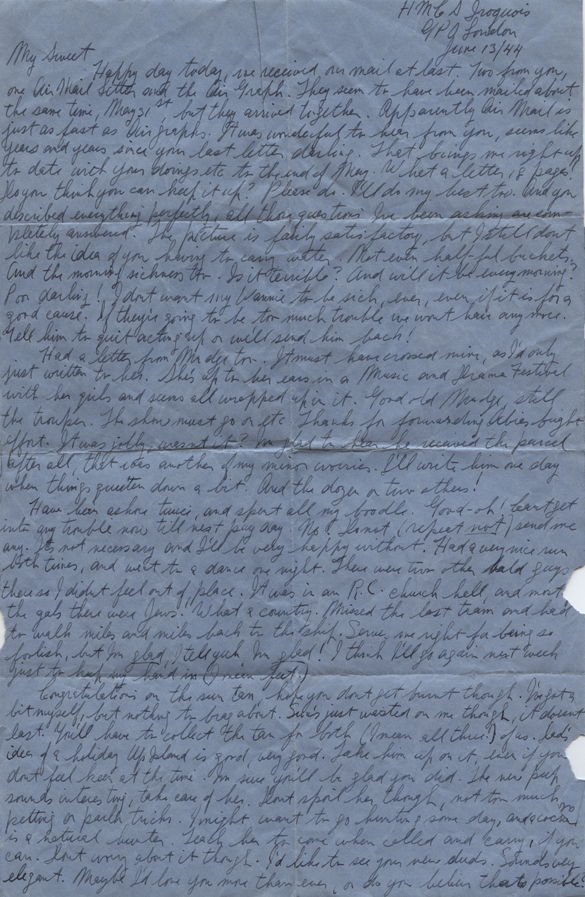 H M C S Iroquois
G P O London
June 13/44
My Sweet
Happy day today, we received our mail at last. Two from you,
one Air Mail Letter and the Air Graph. They seem to have been mailed about
the same time, May 31st, but they arrived together. Apparently Air Mail is
just as fast as Air graphs. It was wonderful to hear from you, seems like
years and years since your last letter darling. That brings me right up
to date with your doings etc to the end of May. What a letter, 18 pages!
Do you think you can keep it up? Please do. I'll do my best too. And you
described everything perfectly, all those questions I've been asking are com-
pletely answered. The picture is fairly satisfactory, but I still don't
like the idea of you having to carry water. Not even half-ful buckets.
And the morning sickness too. Is it terrible? And will it be every morning?
Poor darling! I dont want my Wannie to be sick, ever, even if it is for a
good cause. If they're going to be too much trouble we wont have any more.
Tell him to quit acting up or we'll send him back!
Had a letter from Madge too. It must have crossed mine, as I'd only
just written to her. She's up to her ears in a Music and Drama Festival
with her girls and seems all wrapped up in it. Good old Madge, still
the trouper. The show must go on etc. Thanks for forwarding bright
effort. It was jolly wasn't it? I'm glad to hear he received the parcel
after all, that was another of my minor worries. I'll write him one day
when things quieten down a bit. And the dozen or two others!
Have been ashore twice, and spent all my boodle. Good-oh! Can't get
into any trouble now till next pay day. No! Do not, (repeat not) send me
any. Its not necessary and I'll be very happy without. Had a very nice run
both times, and went to a dance one night. There were two other bald guys
there so I didn't feel out of place. It was in an R.C. church hall and most
the gals there were Jews. What a country. Missed the last tram and had
to walk miles and miles back to the ship. Serves me right for being so
foolish, but I'm glad, I tell yuh I'm glad! I think I'll go again next week
just to keep my hand in (I mean feet.)
Congratulations on the sun tan hope you dont get burnt though. I've got a
bit myself, but nothing to brag about. Sun's just wasted on me though, it doesnt
last. You'll have to collect the tan for both (I mean all three!) of us. Dads'
idea of a holiday Up Island is good, very good. Take him up on it, even if you
dont feel keen at the time. I'm sure you'll be glad you did. The new pup
sounds interesting, take care of her. Dont spoil her though, not too much
petting or parlor tricks. I might want to go hunting some day, and a cocker
is a natural hunter. Teach her to come when called and carry, if you
can. Dont worry about it though. I'd like to see your new duds. Sounds very
elegant. Maybe I'd love you more than ever, or do you believe that's possible?